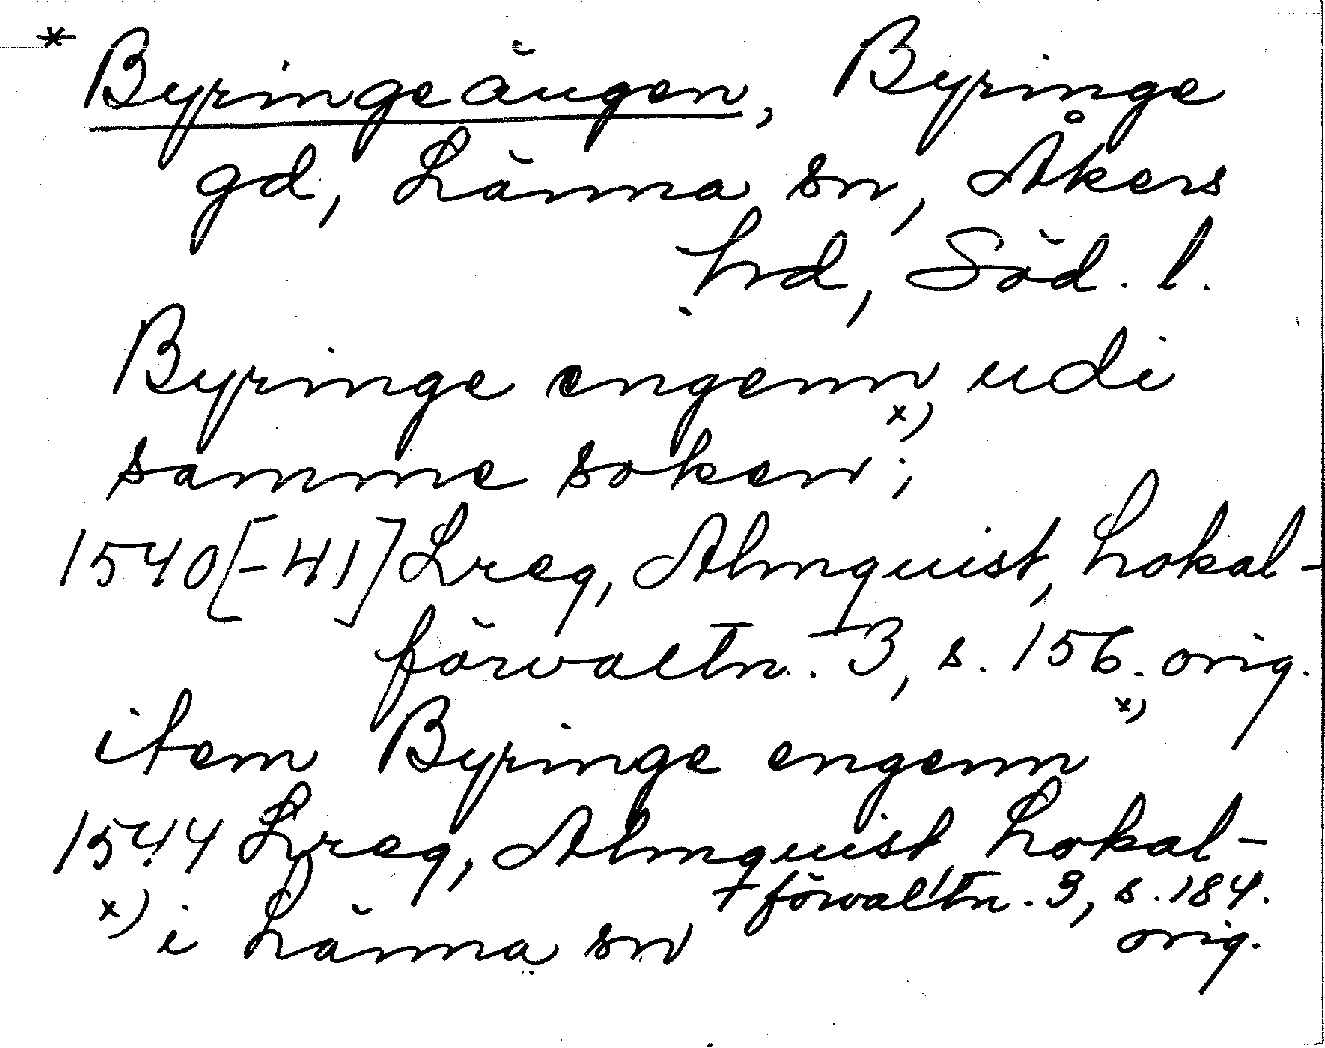 * Byringeängen, Byringe
gd, Länna sn, Åkers
hd, Söd. l.
Byringe engenn, udi
samme soken x);
1540[-41] Lreg, Almquist, Lokal-
förvaltn. 3, s. 156. orig.
item Byringe engenn x)
1544 Lreg, Almquist, Lokal-
förvaltn. 3, s. 184.
orig.
x) i Länna sn